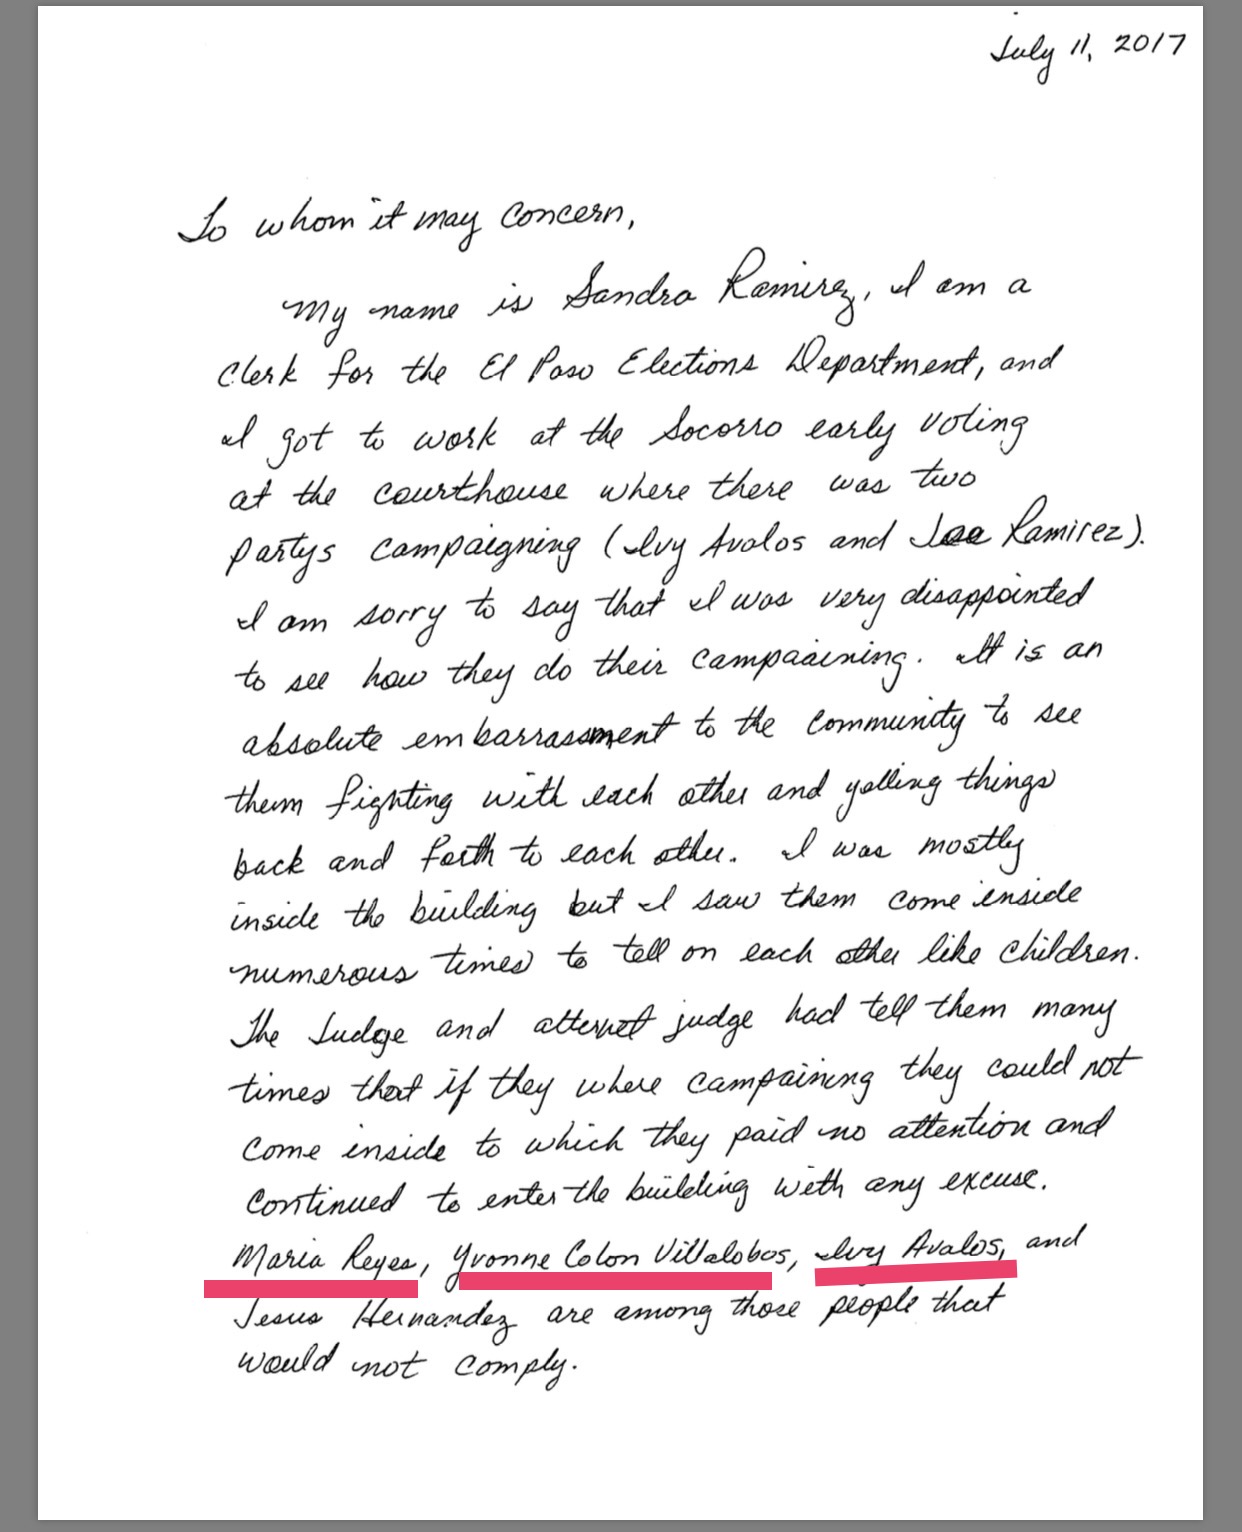 July 11, 2017
To whom it may concern,
My name is Sandra Ramirez, I am a
clerk for the El Paso Elections Department, and
I got to work at the Socorro early voting
at the courthouse where there was two
partys campaigning (Ivy Avalos and Joe Ramirez).
I am sorry to say that I was very disappointed
to see how they do their campaaining. It is an
absolute embarrassment to the community to see
them fighting with each other and yelling things
back and forth to each other. I was mostly
inside the building but I saw them come inside
numerous times to tell on each other like children.
The Judge and alternet judge had tell them many
times that if they where campaining they could not
come inside to which they paid no attention and
continued to enter the building with any excuse.
Maria Reyes, Yvonne Colon Villalobos, Ivy Avalos, and
Jesus Hernandez are among those people that
would not comply.